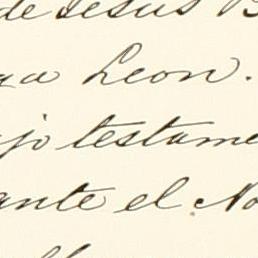 de Jesus
Leon.
testame
ante el No